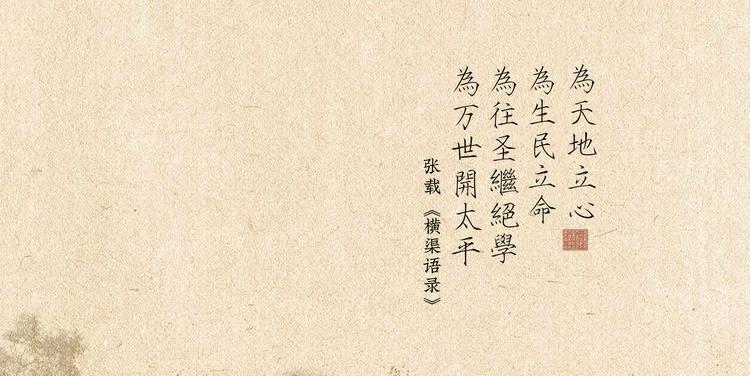 為天地立心
為生民立命
為往圣繼絕學
為万世開太平
张载《横渠语录》